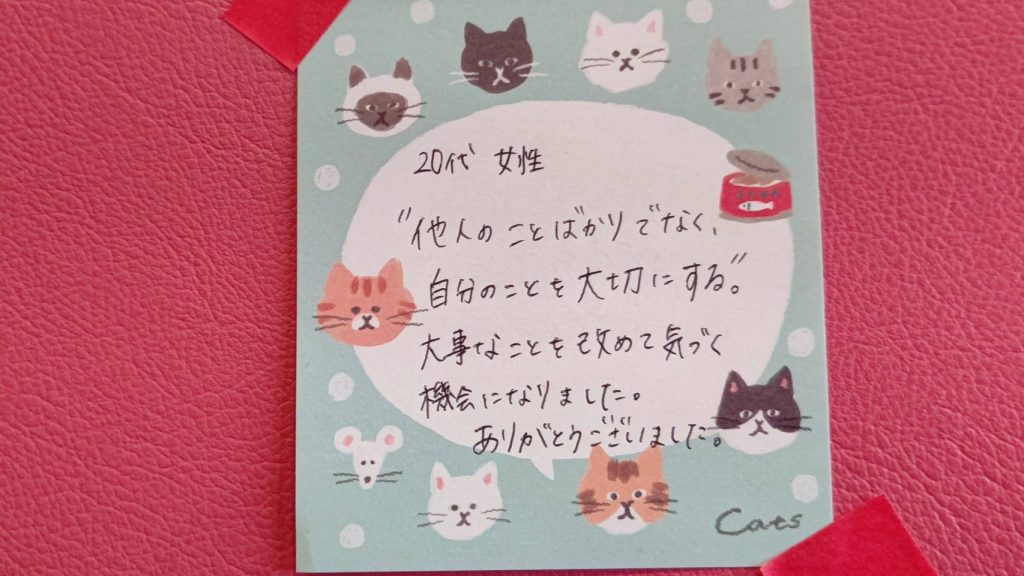 20代 女性
"他人のことばかりでなく、
自分のことを大切にする"。
大事なことを改めて気づく
機会になりました。
ありがとうございました。
Cats